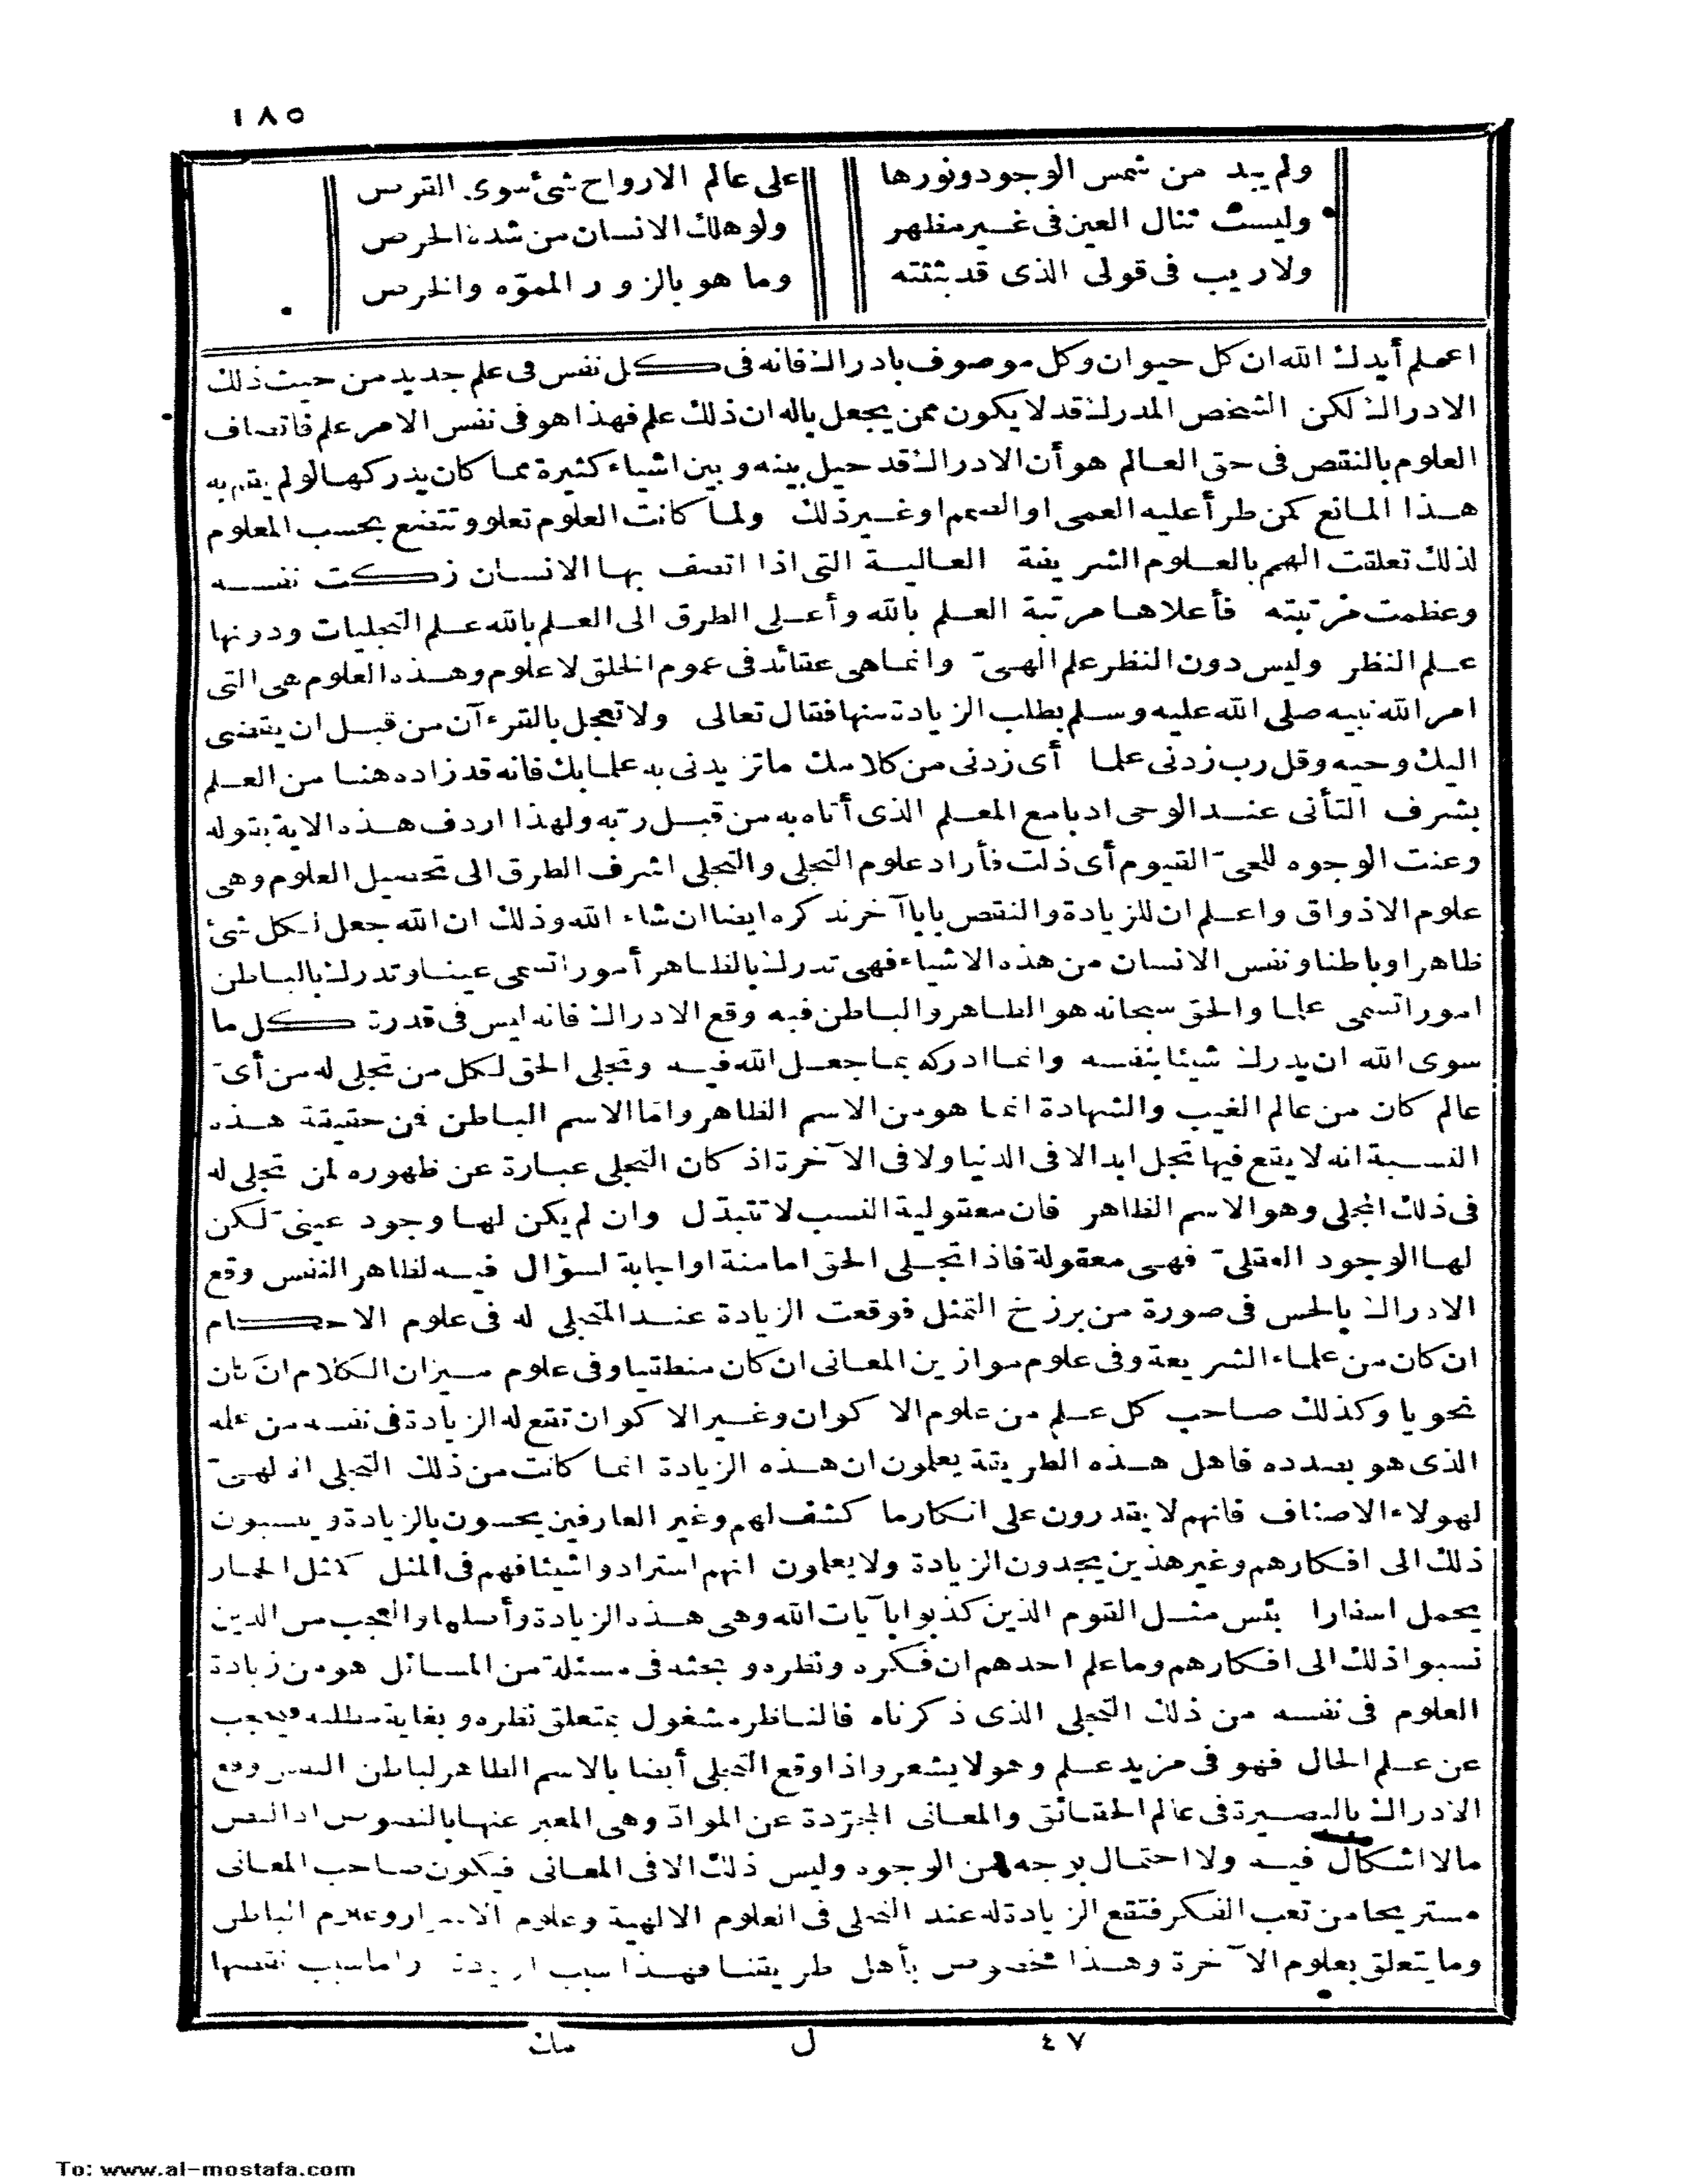 ١٨٥
ولم يبد من شمس الوجود ونورها على عالم الارواح شئ سوى القرص
وليست تنال العين فى غير مظهر ولو هلك الانسان من شدة الحرص
ولا ريب فى قولى الذى قد بثثته وما هو بالزور المموّه والخرص
اعلم أيدك الله ان كل حيوان وكل موصوف بادراك فانه فى كل نفس فى علم جديد من حيث ذلك
الادراك لكن الشخص المدرك قد لا يكون ممن يجعل باله ان ذلك علم فهذا هو فى نفس الامر علم فاتصاف
العلوم بالنقص فى حق العالم هو أن الادراك قد حيل بينه وبين اشياء كثيرة مما كان يدركها لو لم يقم به
هذا المانع كمن طرأ عليه العمى او الصمم او غير ذلك ولما كانت العلوم تعلو وتتضع بحسب المعلوم
لذلك تعلقت الهمم بالعلوم الشريفة العالية التى اذا اتصف بها الانسان زكت نفسه
وعظمت مرتبته فأعلاها مرتبة العلم بالله وأعلى الطرق الى العلم بالله علم التجليات ودونها
علم النظر وليس دون النظر علم الهىّ وانما هى عقائد فى عموم الخلق لا علوم وهذه العلوم هى التى
امر الله نبيه صلى الله عليه وسلم بطلب الزيادة منها فقال تعالى ولا تعجل بالقرءآن من قبل ان يقضى
اليك وحيه وقل رب زدنى علما أى زدنى من كلامك ما تزيدنى به علما بك فانه قد زاده هنا من العلم
بشرف التأنى عند الوحى ادبا مع المعلم الذى أتاه به من قبل ربّه ولهذا اردف هذه الاية بقوله
وعنت الوجوه للحىّ القيوم أى ذلت فأراد علوم التجلى والتجلى اشرف الطرق الى تحصيل العلوم وهى
علوم الاذواق واعلم ان للزيادة والنقص بابا آخر نذكره ايضا ان شاء الله وذلك ان الله جعل لكل شئ
ظاهرا وباطنا ونفس الانسان من هذه الاشياء فهى تدرك بالظاهر أمورا تسمى عينا وتدرك بالباطن
امورا تسمى علما والحق سبحانه هو الظاهر والباطن فبه وقع الادراك فانه ليس فى قدرة كل ما
سوى الله ان يدرك شيئا بنفسه وانما ادركه بما جعل الله فيه وتجلى الحق لكل من تجلى له من أىّ
عالم كان من عالم الغيب والشهادة انما هو من الاسم الظاهر وامّا الاسم الباطن فمن حقيقة هذه
النسبة انه لا يقع فيها تجل ابدا لا فى الدنيا ولا فى الآخرة اذ كان التجلى عبارة عن ظهوره لمن تجلى له
فى ذلك المجلى وهو الاسم الظاهر فان معقولية النسب لا تتبدّل وان لم يكن لها وجود عينىّ لكن
لها الوجود العقلىّ فهى معقولة فاذا تجلى الحق اما منة او اجابة لسؤال فيه لظاهر النفس وقع
الادراك بالحس فى صورة من برزخ التمثل فوقعت الزيادة عند المتجلى له فى علوم الاحكام
ان كان من علماء الشريعة وفى علوم موازين المعانى ان كان منطقيا وفى علوم ميزان الكلام ان كان
نحويا وكذلك صاحب كل علم من علوم الاكوان وغير الاكوان تقع له الزيادة فى نفسه من علمه
الذى هو بصدده فاهل هذه الطريقة يعلمون ان هذه الزيادة انما كانت من ذلك التجلى الالهىّ
لهولاء الاصناف فانهم لا يقدرون على انكار ما كشف لهم وغير العارفين يحسون بالزيادة وينسبون
ذلك الى افكارهم وغير هذين يجدون الزيادة ولا يعلمون انهم استزادوا شيئا فهم فى المثل كمثل الحمار
يحمل اسفارا بئس مثل القوم الذين كذبوا بآيات الله وهى هذه الزيادة وأصلها والعجب من الذين
نسبوا ذلك الى افكارهم وما علم احدهم ان فكره ونظره وبحثه فى مسئلة من المسائل هو من زيادة
العلوم فى نفسه من ذلك التجلى الذى ذكرناه فالناظر مشغول بمتعلق نظره وبغاية مطلبه فيحجب
عن علم الحال فهو فى مزيد علم وهو لا يشعر واذا وقع التجلى أيضا بالاسم الظاهر لباطن النفس وقع
الادراك بالبصيرة فى عالم الحقائق والمعانى المجرّدة عن الموادّ وهى المعبر عنها بالنصوص اذ النص
ما لا اشكال فيه ولا احتمال بوجه من الوجوه وليس ذلك الا فى المعانى فيكون صاحب المعانى
مستريحا من تعب الفكر فتقع الزيادة له عند التجلى فى العلوم الالهية وعلوم الاسرار وعلوم الباطن
وما يتعلق بعلوم الآخرة وهذا مخصوص بأهل طريقتنا فهذا سبب الزيادة واما سبب نقصها
٤٧ ل مك
To: www.al-mostafa.com